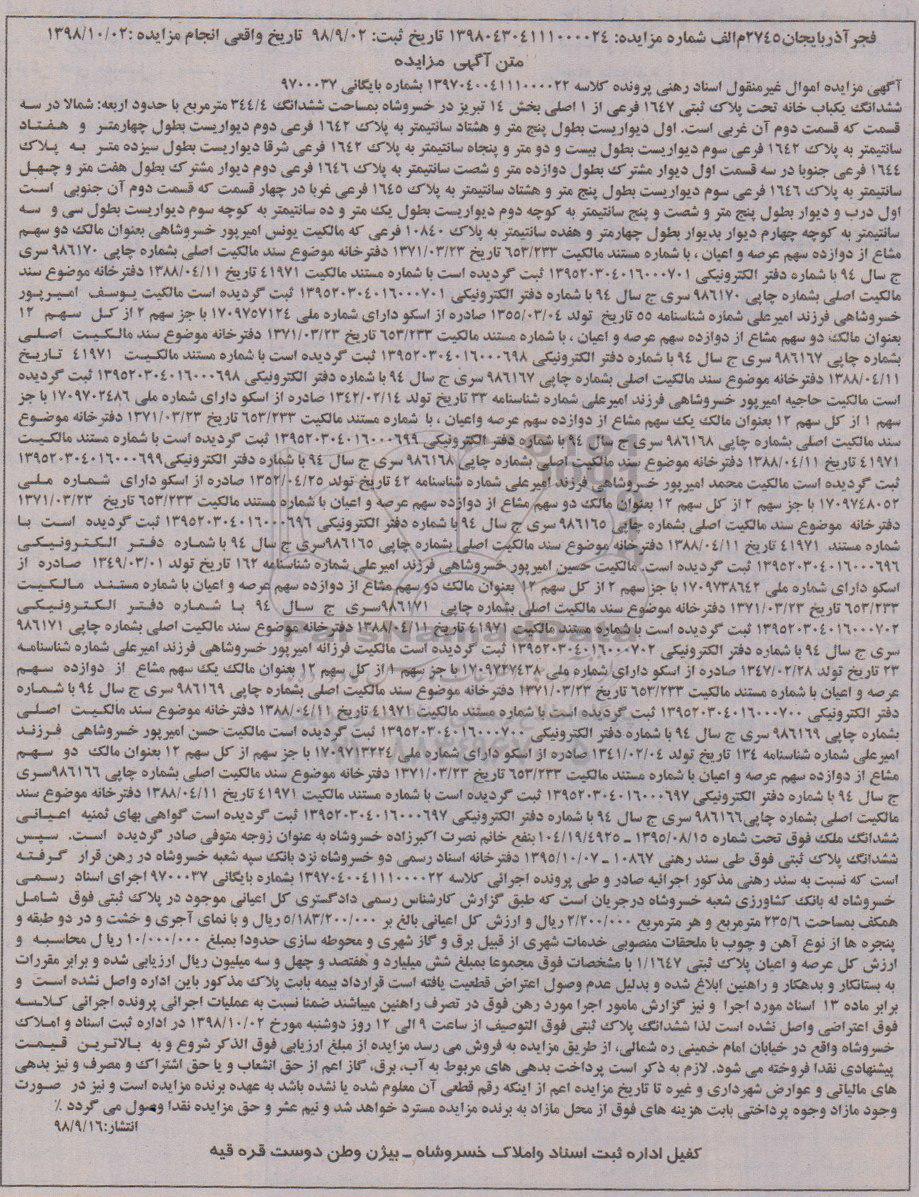 فجر آذربایجان۲۷۴۵م‌الف شماره مزایده: ۱۳۹۸۰۴۳۰۴۱۱۱۰۰۰۰۲۴ تاریخ ثبت: ۹۸/۹/۰۲ تاریخ واقعی انجام مزایده :۱۳۹۸/۱۰/۰۲
متن آگهی مزایده
آگهی مزایده اموال غیرمنقول اسناد رهنی پرونده کلاسه ۱۳۹۷۰۴۰۰۴۱۱۱۰۰۰۰۲۲ شماره بایگانی ۹۷۰۰۰۳۷
ششدانگ یکباب خانه تحت پلاک ثبتی ۱۶۴۷ فرعی از ۱ اصلی بخش ۱۴ تبریز در خسروشاه بمساحت ششدانگ ۳۴۴/۴ مترمربع با حدود اربعه: شمالا در سه
قسمت که قسمت دوم آن غربی است. اول دیواریست بطول پنج متر و هشتاد سانتیمتر به پلاک ۱۶۴۲ فرعی دوم دیواریست بطول چهارمتر و هفتاد
سانتیمتر به پلاک ۱۶۴۲ فرعی سوم دیواریست بطول بیست و دو متر و پنجاه سانتیمتر به پلاک ۱۶۴۲ فرعی شرقا دیواریست بطول سیزده متر به پلاک
۱۶۴۴ فرعی جنوبا در سه قسمت اول دیوار مشترک بطول دوازده متر و شصت سانتیمتر به پلاک ۱۶۴۶ فرعی دوم دیوار مشترک بطول هفت متر و چهل
سانتیمتر به پلاک ۱۶۴۶ فرعی سوم دیواریست بطول پنج متر و هشتاد سانتیمتر به پلاک ۱۶۴۵ فرعی غربا در چهار قسمت که قسمت دوم آن جنوبی است
اول درب و دیوار بطول پنج متر و شصت و پنج سانتیمتر به کوچه دوم دیواریست بطول یک متر و ده سانتیمتر به کوچه سوم دیواریست بطول سی و سه
سانتیمتر به کوچه چهارم دیوار بدیوار بطول چهارمتر و هفده سانتیمتر به پلاک ۱۰۸۴۰ فرعی که مالکیت یونس امیرپور خسروشاهی بعنوان مالک دو سهم
مشاع از دوازده سهم عرصه و اعیان ، با شماره مستند مالکیت ۶۵۳/۲۳۳ تاریخ ۱۳۷۱/۰۳/۲۳ دفترخانه موضوع سند مالکیت اصلی بشماره چاپی ۹۸۶۱۷۰ سری
ج سال ۹۴ با شماره دفتر الکترونیکی ۱۳۹۵۲۰۳۰۴۰۱۶۰۰۰۷۰۱ ثبت گردیده است با شماره مستند مالکیت ۴۱۹۷۱ تاریخ ۱۳۸۸/۰۴/۱۱ دفترخانه موضوع سند
مالکیت اصلی بشماره چاپی ۹۸۶۱۷۰ سری ج سال ۹۴ با شماره دفتر الکترونیکی ۱۳۹۵۲۰۳۰۴۰۱۶۰۰۰۷۰۱ ثبت گردیده است مالکیت یوسف امیرپور
خسروشاهی فرزند امیرعلی شماره شناسنامه ۵۵ تاریخ تولد ۱۳۵۵/۰۳/۰۴ صادره از اسکو دارای شماره ملی ۱۷۰۹۷۵۷۱۲۴ با جز سهم ۲ از کل سهم ۱۲
بعنوان مالک دو سهم مشاع از دوازده سهم عرصه و اعیان ، با شماره مستند مالکیت ۶۵۳/۲۳۳ تاریخ ۱۳۷۱/۰۳/۲۳ دفترخانه موضوع سند مالکیت اصلی
بشماره چاپی ۹۸۶۱۶۷ سری ج سال ۹۴ با شماره دفتر الکترونیکی ۱۳۹۵۲۰۳۰۴۰۱۶۰۰۰۶۹۸ ثبت گردیده است با شماره مستند مالکیت ۴۱۹۷۱ تاریخ
۱۳۸۸/۰۴/۱۱ دفترخانه موضوع سند مالکیت اصلی بشماره چاپی ۹۸۶۱۶۷ سری ج سال ۹۴ با شماره دفتر الکترونیکی ۱۳۹۵۲۰۳۰۴۰۱۶۰۰۰۶۹۸ ثبت گردیده
است مالکیت حاجیه امیرپور خسروشاهی فرزند امیرعلی شماره شناسنامه ۳۳ تاریخ تولد ۱۳۴۲/۰۲/۱۴ صادره از اسکو دارای شماره ملی ۱۷۰۹۷۰۲۴۸۶ با جز
سهم ۱ از کل سهم ۱۲ بعنوان مالک یک سهم مشاع از دوازده سهم عرصه واعیان ، با شماره مستند مالکیت ۶۵۳/۲۳۳ تاریخ ۱۳۷۱/۰۳/۲۳ دفترخانه موضوع
سند مالکیت اصلی بشماره چاپی ۹۸۶۱۶۸ سری ج سال ۹۴ با شماره دفتر الکترونیکی ۱۳۹۵۲۰۳۰۴۰۱۶۰۰۰۶۹۹ ثبت گردیده است با شماره مستند مالکیت
۴۱۹۷۱ تاریخ ۱۳۸۸/۰۴/۱۱ دفترخانه موضوع سند مالکیت اصلی بشماره چاپی ۹۸۶۱۶۸ سری ج سال ۹۴ با شماره دفتر الکترونیکی۱۳۹۵۲۰۳۰۴۰۱۶۰۰۰۶۹۹
ثبت گردیده است مالکیت محمد امیرپور خسروشاهی فرزند امیرعلی شماره شناسنامه ۴۲ تاریخ تولد ۱۳۵۲/۰۴/۲۵ صادره از اسکو دارای شماره ملی
۱۷۰۹۷۴۸۰۵۲ با جز سهم ۲ از کل سهم ۱۲ بعنوان مالک دو سهم مشاع از دوازده سهم عرصه و اعیان با شماره مستند مالکیت ۶۵۳/۲۳۳ تاریخ ۱۳۷۱/۰۳/۲۳
دفترخانه موضوع سند مالکیت اصلی بشماره چاپی ۹۸۶۱۶۵ سری ج سال ۹۴ با شماره دفتر الکترونیکی ۱۳۹۵۲۰۳۰۴۰۱۶۰۰۰۶۹۶ ثبت گردیده است با
شماره مستند ۴۱۹۷۱ تاریخ ۱۳۸۸/۰۴/۱۱ دفترخانه موضوع سند مالکیت اصلی بشماره چاپی ۹۸۶۱۶۵سری ج سال ۹۴ با شماره دفتر الکترونیکی
۱۳۹۵۲۰۳۰۴۰۱۶۰۰۰۶۹۶ ثبت گردیده است. مالکیت حسین امیرپور خسروشاهی فرزند امیرعلی شماره شناسنامه ۱۶۲ تاریخ تولد ۱۳۴۹/۰۳/۰۱ صادره از
اسکو دارای شماره ملی ۱۷۰۹۷۳۸۶۴۲ با جز سهم ۲ از کل سهم ۱۲ بعنوان مالک دو سهم مشاع از دوازده سهم عرصه و اعیان با شماره مستند مالکیت
۶۵۳/۲۳۳ تاریخ ۱۳۷۱/۰۳/۲۳ دفترخانه موضوع سند مالکیت اصلی بشماره چاپی ۹۸۶۱۷۱سری ج سال ۹۴ با شماره دفتر الکترونیکی
۱۳۹۵۲۰۳۰۴۰۱۶۰۰۰۷۰۲ ثبت گردیده است با شماره مستند مالکیت ۴۱۹۷۱ تاریخ ۱۳۸۸/۰۴/۱۱ دفترخانه موضوع سند مالکیت اصلی بشماره چاپی ۹۸۶۱۷۱
سری ج سال ۹۴ با شماره دفتر الکترونیکی ۱۳۹۵۲۰۳۰۴۰۱۶۰۰۰۷۰۲ ثبت گردیده است مالکیت فرزانه امیرپور خسروشاهی فرزند امیرعلی شماره شناسنامه
۲۳ تاریخ تولد ۱۳۴۷/۰۲/۲۸ صادره از اسکو دارای شماره ملی ۱۷۰۹۷۲۷۴۳۸ با جز سهم ۱ از کل سهم ۱۲ بعنوان مالک یک سهم مشاع از دوازده سهم
عرصه و اعیان با شماره مستند مالکیت ۶۵۳/۲۳۳ تاریخ ۱۳۷۱/۰۳/۲۳ دفترخانه موضوع سند مالکیت اصلی بشماره چاپی ۹۸۶۱۶۹ سری ج سال ۹۴ با شماره
دفتر الکترونیکی ۱۳۹۵۲۰۳۰۴۰۱۶۰۰۰۷۰۰ ثبت گردیده است با شماره مستند مالکیت ۴۱۹۷۱ تاریخ ۱۳۸۸/۰۴/۱۱ دفترخانه موضوع سند مالکیت اصلی
بشماره چاپی ۹۸۶۱۶۹ سری ج سال ۹۴ با شماره دفتر الکترونیکی ۱۳۹۵۲۰۳۰۴۰۱۶۰۰۰۷۰۰ ثبت گردیده است مالکیت حسن امیرپور خسروشاهی فرزند
امیرعلی شماره شناسنامه ۱۳۴ تاریخ تولد ۱۳۴۱/۰۲/۰۴ صادره از اسکو دارای شماره ملی ۱۷۰۹۷۱۳۲۲۴ با جز سهم از کل سهم ۱۲ بعنوان مالک دو سهم
مشاع از دوازده سهم عرصه و اعیان با شماره مستند مالکیت ۶۵۳/۲۳۳ تاریخ ۱۳۷۱/۰۳/۲۳ دفترخانه موضوع سند مالکیت اصلی بشماره چاپی ۹۸۶۱۶۶سری
ج سال ۹۴ با شماره دفتر الکترونیکی ۱۳۹۵۲۰۳۰۴۰۱۶۰۰۰۶۹۷ ثبت گردیده است با شماره مستند مالکیت ۴۱۹۷۱ تاریخ ۱۳۸۸/۰۴/۱۱ دفترخانه موضوع سند
مالکیت اصلی بشماره چاپی۹۸۶۱۶۶ سری ج سال ۹۴ با شماره دفتر الکترونیکی ۱۳۹۵۲۰۳۰۴۰۱۶۰۰۰۶۹۷ ثبت گردیده است گواهی بهای ثمنیه اعیانی
ششدانگ ملک فوق تحت شماره ۱۳۹۵/۰۸/۱۵ ـ ۱۰۴/۱۹/۴۹۲۵ بنفع خانم نصرت اکبرزاده خسروشاه به عنوان زوجه متوفی صادر گردیده است. سپس
ششدانگ پلاک ثبتی فوق طی سند رهنی ۱۰۸۶۷ ـ ۱۳۹۵/۱۰/۰۷ دفترخانه اسناد رسمی دو خسروشاه نزد بانک سپه شعبه خسروشاه در رهن قرار گرفته
است که نسبت به سند رهنی مذکور اجرائیه صادر و طی پرونده اجرائی کلاسه ۱۳۹۷۰۴۰۰۴۱۱۱۰۰۰۰۲۲ بشماره بایگانی ۹۷۰۰۰۳۷ اجرای اسناد رسمی
خسروشاه له بانک کشاورزی شعبه خسروشاه درجریان است که طبق گزارش کارشناس رسمی دادگستری کل اعیانی موجود در پلاک ثبتی فوق شامل
همکف بمساحت ۲۳۵/۶ مترمربع و هر مترمربع ۲/۲۰۰/۰۰۰ ریال و ارزش کل اعیانی بالغ بر ۵/۱۸۳/۲۰۰/۰۰۰ ریال و با نمای آجری و خشت و در دو طبقه و
پنجره ها از نوع آهن و چوب با ملحقات منصوبی خدمات شهری از قبیل برق و گاز شهری و محوطه سازی حدودا بمبلغ ۱۰/۰۰۰/۰۰۰ ریال محاسبه و
ارزش کل عرصه و اعیان پلاک ثبتی ۱/۱۶۴۷ با مشخصات فوق مجموعا بمبلغ شش میلیارد و هفتصد و چهل و سه میلیون ریال ارزیابی شده و برابر مقررات
به بستانکار و بدهکار و راهنین ابلاغ شده و بدلیل عدم وصول اعتراض قطعیت یافته است قرارداد بیمه بابت پلاک مذکور باین اداره واصل نشده است و
برابر ماده ۱۳ اسناد مورد اجرا و نیز گزارش مامور اجرا مورد رهن فوق در تصرف راهنین میباشند ضمنا نسبت به عملیات اجرائی پرونده اجرائی کلاسه
فوق اعتراضی واصل نشده است لذا ششدانگ پلاک ثبتی فوق التوصیف از ساعت ۹ الی ۱۲ روز دوشنبه مورخ ۱۳۹۸/۱۰/۰۲ در اداره ثبت اسناد و املاک
خسروشاه واقع در خیابان امام خمینی ره شمالی، از طریق مزایده به فروش می رسد مزایده از مبلغ ارزیابی فوق الذکر شروع و به بالاترین قیمت
پیشنهادی نقدا فروخته می شود. لازم به ذکر است پرداخت بدهی های مربوط به آب، برق، گاز اعم از حق انشعاب و یا حق اشتراک و مصرف و نیز بدهی
های مالیاتی و عوارض شهرداری و غیره تا تاریخ مزایده اعم از اینکه رقم قطعی آن معلوم شده یا نشده باشد به عهده برنده مزایده است و نیز در صورت
وجود مازاد وجوه پرداختی بابت هزینه های فوق از محل مازاد به برنده مزایده مسترد خواهد شد و نیم عشر و حق مزایده نقدا وصول می گردد ٪
انتشار:۹۸/۹/۱۶
کفیل اداره ثبت اسناد واملاک خسروشاه ـ بیژن وطن دوست قره قیه